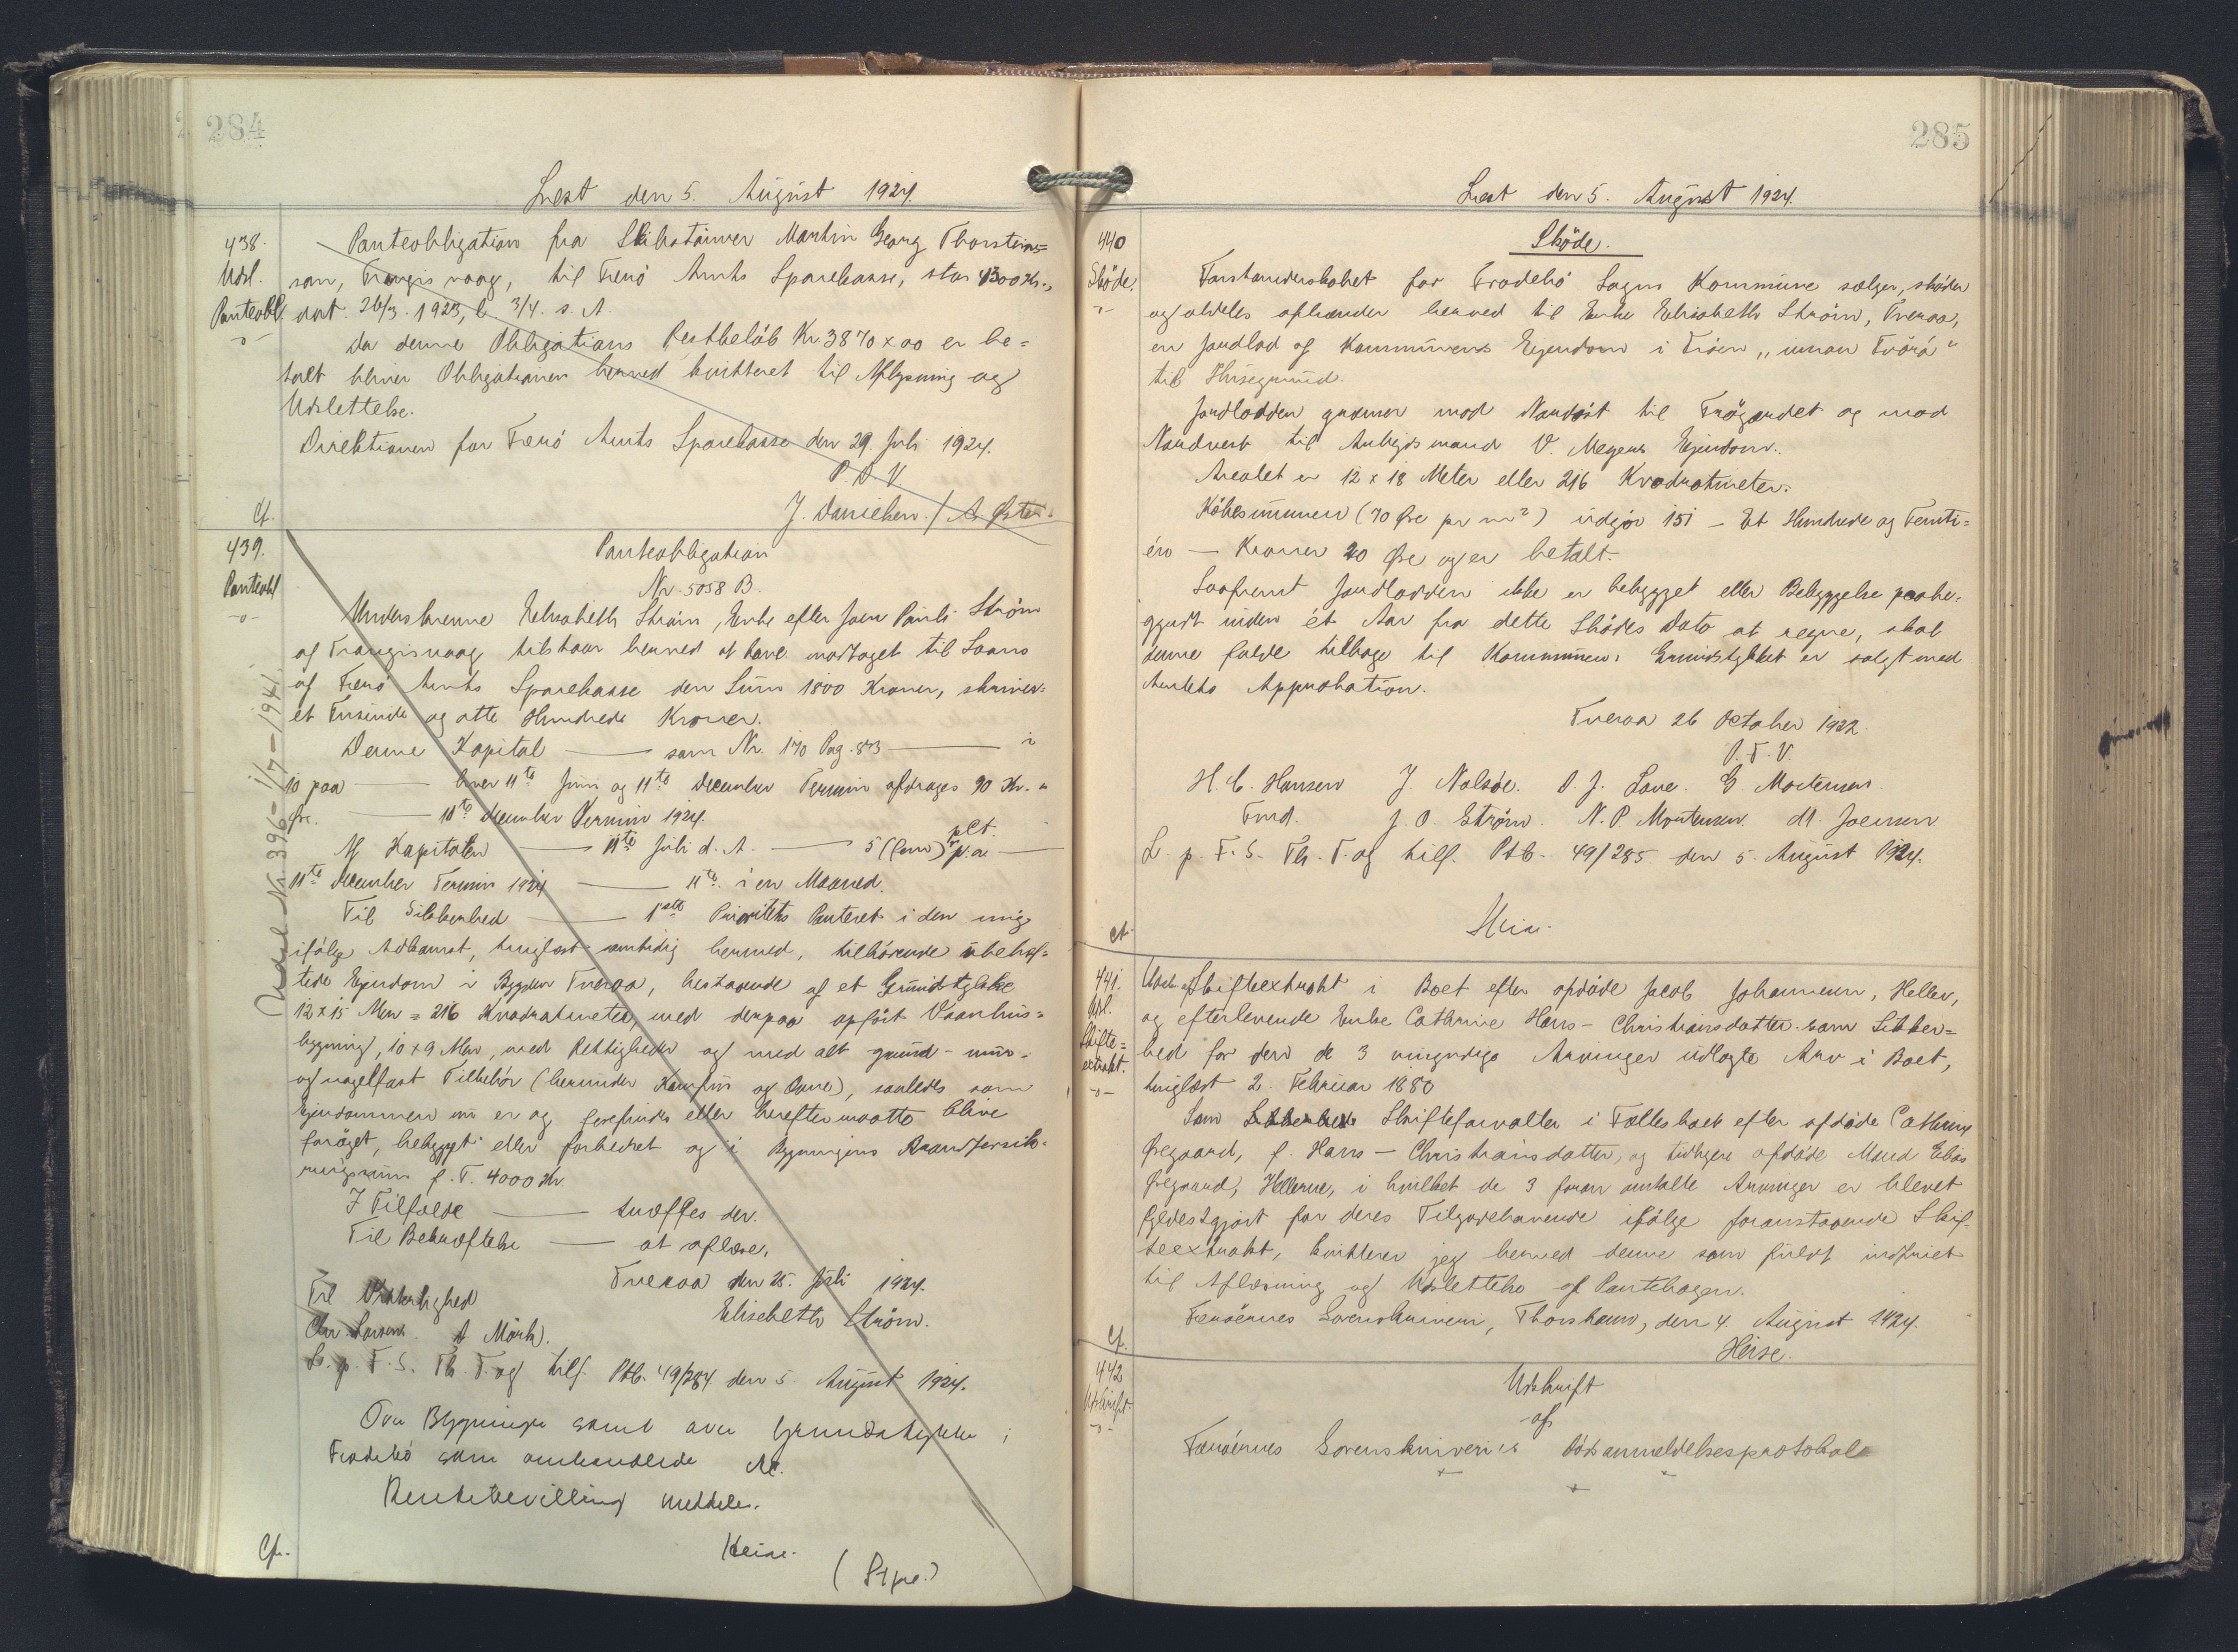 284
Læst den 5. August 1924.
438.
Udsl.
Panteobl.
-o-
Panteobligation fra Skibstømrer Martin Georg Thorstein=
son, Trangisvaag, til Færø Amts Sparekasse, stor 4300 Kr.,
dat. 26/3. 1923, l. 3/4. s. A.
Da denne Obligations Restbeløb Kr. 3870 x 00 er be=
talt bliver Obligationen herved kvitteret til Aflysning og
Udslettelse.
Direktionen for Færø Amts Sparekasse den 29. Juli 1924.
P. D. V.
J. Danielsen. /
Cf.
439.
Panteobl
-o-
Panteobligation
Nr. 5058 B.
Underskrevne Elisabeth Strøm, Enke efter Joen Pauli Strøm
af Trangisvaag tilstaar herved at have modtaget til Laans
af Færø Amts Sparekasse den Sum 1800 Kroner, skriver=
et Tusinde og otte Hundrede Kroner.
Denne Kapital — som Nr. 170 Pag. 873 — i
10 paa — hver 11te Juni og 11te December Termin afdrages 90 Kr. "
Øre. — 11te December Termin 1924.
Af Kapitalen — 11te Juli d. A. — 5 (fem) pCt. p. a. —
11te December Termin 1924 — 11te i en Maaned.
Til Sikkerhed — 1ste Prioritets Panteret i den mig
ifølge Adkomst, tinglæst samtidig hermed, tilhørende ubehæf=
tede Ejendom i Bygden Tveraa, bestaaende af et Grundstykke
12 x 15 Mtr = 216 Kvadratmeter, med derpaa opført Vaanhus=
bygning, 10 x 9 Mtr, med Rettigheder og med alt grund- mur-
og nagelfast Tilbehør (herunder Komfur og Ovne), saaledes som
Ejendommen nu er og forefindes eller herefter maatte blive
forøget, bebygget eller forbedret og i Bygningens Brandforsik=
ringssum p. T. 4000 Kr.
I Tilfælde — træffes der.
Til Bekræftelse — at aflæse,
Tveraa den 25. Juli 1924.
Elisebeth Strøm.
Til Vitterlighed
Chr. Larsen. A Mørk.
L. p. F. S. Th. T. og tilf. Ptb. 49/284 den 5 August 1924.
Over Bygningen samt over Grundstykke i
Frodebø som omhandlede
Rentebevilling meddeles.
Heise.
Cf.
Udsl. Nr. 396 - 1/7 - 1941.
285
Læst den 5. August 1924.
440
Skøde.
-o-
Skøde.
Forstanderskabet for Frodebø Sogns Kommune sælger, skøder
og aldeles afhænder herved til Enke Elisabeth Strøm, Tveraa,
en Jordlod af Kommunens Ejendom i Trøen „innan Tvørá"
til Husegrund.
Jordlodden grænser mod Nordøst til Trøgærdet og mod
Nordvest til Anlægsmand V. Meyers Ejendom.
Arealet er 12 x 18 Meter eller 216 Kvadratmeter.
Købesummen (70 Øre pr m²) udgør 151 - Et Hundrede og Femti=
én — Kroner 20 Øre og er betalt.
Saafremt Jordlodden ikke er bebygget eller Bebyggelse paabe=
gyndt inden ét Aar fra dette Skødes Dato at regne, skal
denne falde tilbage til Kommunen. Grundstykket er solgt med
Amtets Approbation.
Tveraa 26 October 1922.
P. F. V.
H. C. Hansen J. Nolsøe. D. J. Lave. G Mortensen.
Fmd. J. O. Strøm. N. P. Mortensen. M. Joensen
L. p. F. S. Th. T. og tilf. Ptb. 49/285 den 5. August 1924.
Heise.
Cf.
441.
Udsl.
Skifte=
extrakt.
-o-
Skifteextrakt i Boet efter afdøde Jacob Johannesen, Hellen,
og efterlevende Enke Cathrine Hans-Christiansdatter som Sikker=
hed for den de 3 umyndige Arvinger udlagte Arv i Boet,
tinglæst 2. Februar 1880
Som Skifteforvalter i Fællesboet efter afdøde Cathrine
Øregaard, f. Hans-Christiansdatter, og tidligere afdøde Mand Elias
Øregaard, Hellerne, i hvilket de 3 foran omtalte Arvinger er blevet
fyldestgjort for deres Tilgodehavende ifølge foranstaaende Skif-
teextrakt, kvitterer jeg herved denne som fuldt indfriet
til Aflæsning og Udslettelse af Pantebogen.
Færøernes Sorenskriveri, Thorshavn, den 4. August 1924.
Heise.
Cf.
442
Udskrift.
-o-
Udskrift
af
Færøernes Sorenskriveri's Dødsanmeldelsesprotokol